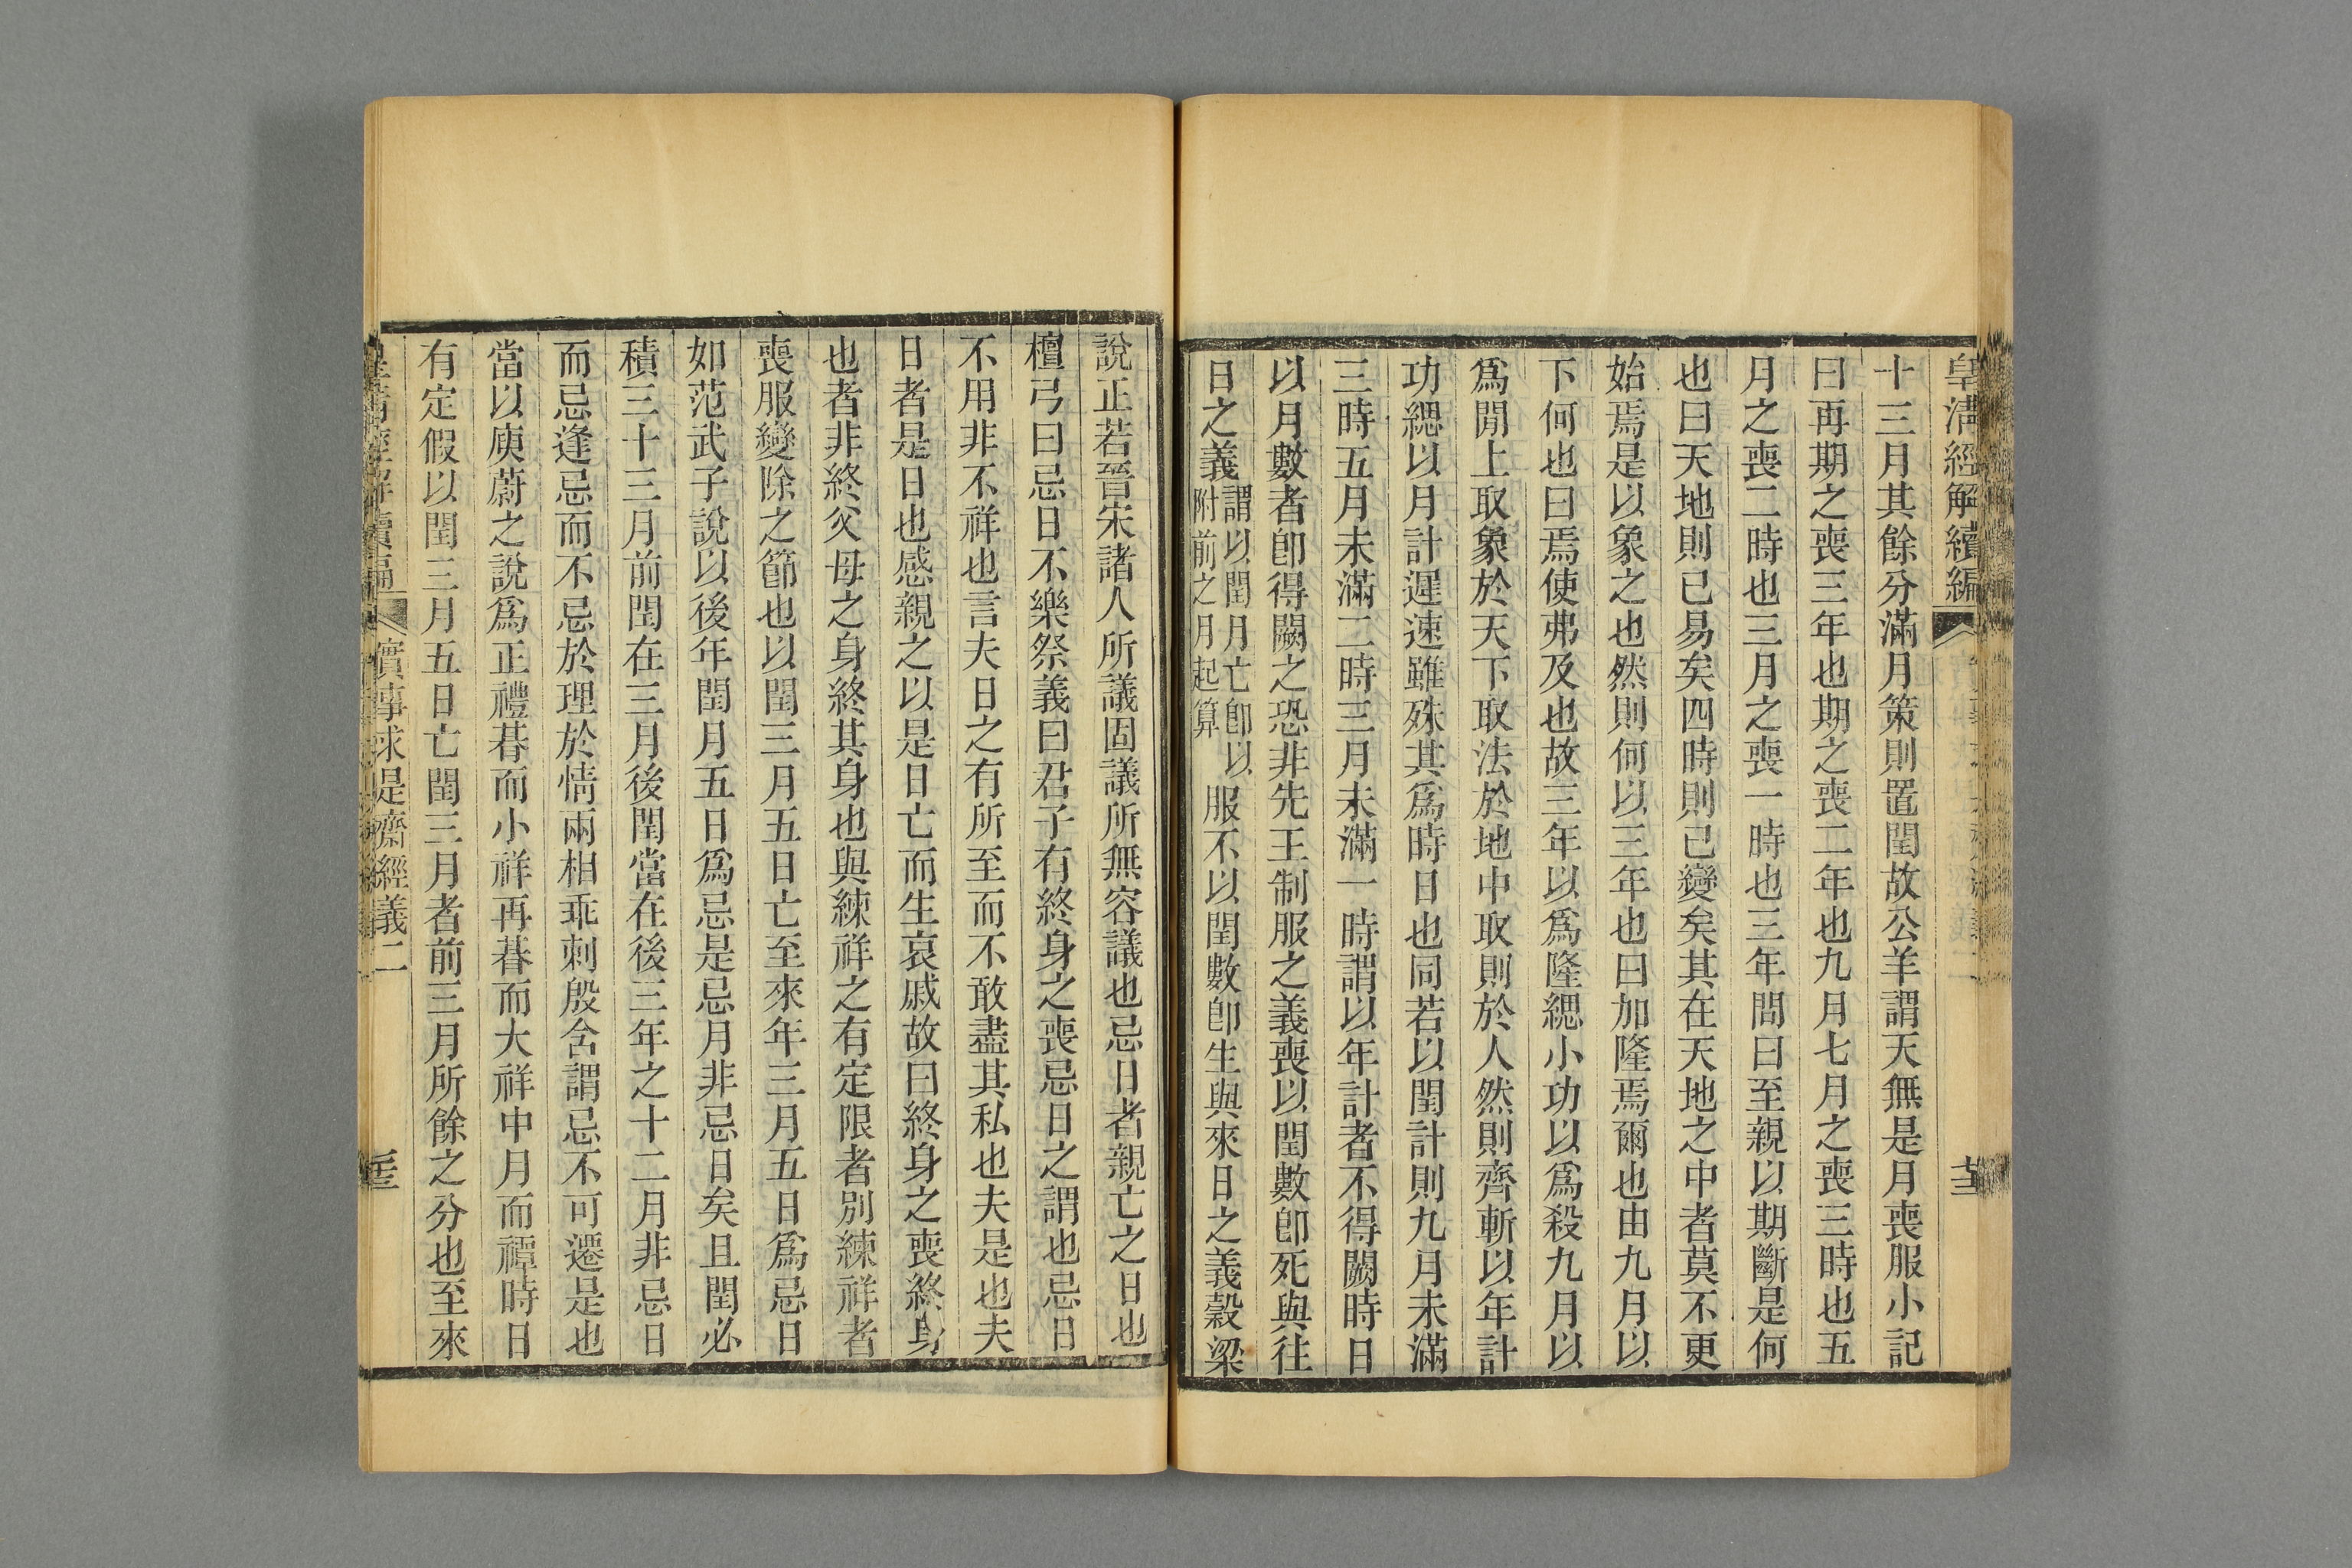 皇清經解續編
十三月其餘分滿月策則置閏故公羊謂天無是月喪服小記
曰再期之喪三年也期之喪二年也九月七月之喪三時也五
月之喪二時也三月之喪一時也三年問曰至親以期斷是何
也曰天地則已易矣四時則已變矣其在天地之中者莫不更
始焉是以象之也然則何以三年也曰加隆焉爾也由九月以
下何也曰焉使弗及也故三年以爲隆緦小功以爲殺九月以
爲閒上取象於天下取法於地中取則於人然則齊斬以年計
功緦以月計遲速雖殊其爲時日也同若以閏計則九月未滿
三時五月未滿二時三月未滿一時謂以年計者不得闕時日
以月數者卽得闕之恐非先王制服之義喪以閏數卽死與往
日之義謂以閏月亡卽以附前之月起算服不以閏數卽生與來日之義穀梁
說正若晉宋諸人所議固議所無容議也忌日者親亡之日也
檀弓曰忌日不樂祭義曰君子有終身之喪忌日之謂也忌日
不用非不祥也言夫日之有所至而不敢盡其私也夫是也夫
日者是日也感親之以是日亡而生哀戚故曰終身之喪終身
也者非終父母之身終其身也與練祥之有定限者別練祥者
喪服變除之節也以閏三月五日亡至來年三月五日爲忌日
如范武子說以後年閏月五日爲忌是忌月非忌日矣且閏必
積三十三月前閏在三月後閏當在後三年之十二月非忌日
而忌逢忌而不忌於理於情兩相乖刺殷合謂忌不可遷是也
當以庾蔚之說爲正禮朞而小祥再朞而大祥中月而禫時日
有定假以閏三月五日亡閏三月者前三月所餘之分也至來
皇清經解續編 實事求是齋經義二